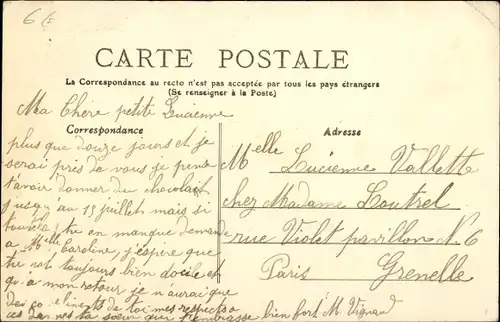 6f
CARTE POSTALE
La Correspondance au recto n'est pas acceptée par tous les pays étrangers
(Se renseigner à la Poste)
Ma Chère petite Lucienne
Correspondance
plus que douze jours et je
serai près de vous je pense
t'avoir donner du chocolat
jusqu'au 15 juillet mais si
tu en manque demande
a Melle Caroline, j'espère que
tu est toujours bien docile et
qu'a mon retour je n'aurai que
des de toi mes respects a
ces Dames ta sœur qui t'embrasse bien fort M. Vignaud
Adresse
Melle Lucienne Vallett
chez Madame Loutrel
rue Violet pavillon N. 6
Paris Grenelle